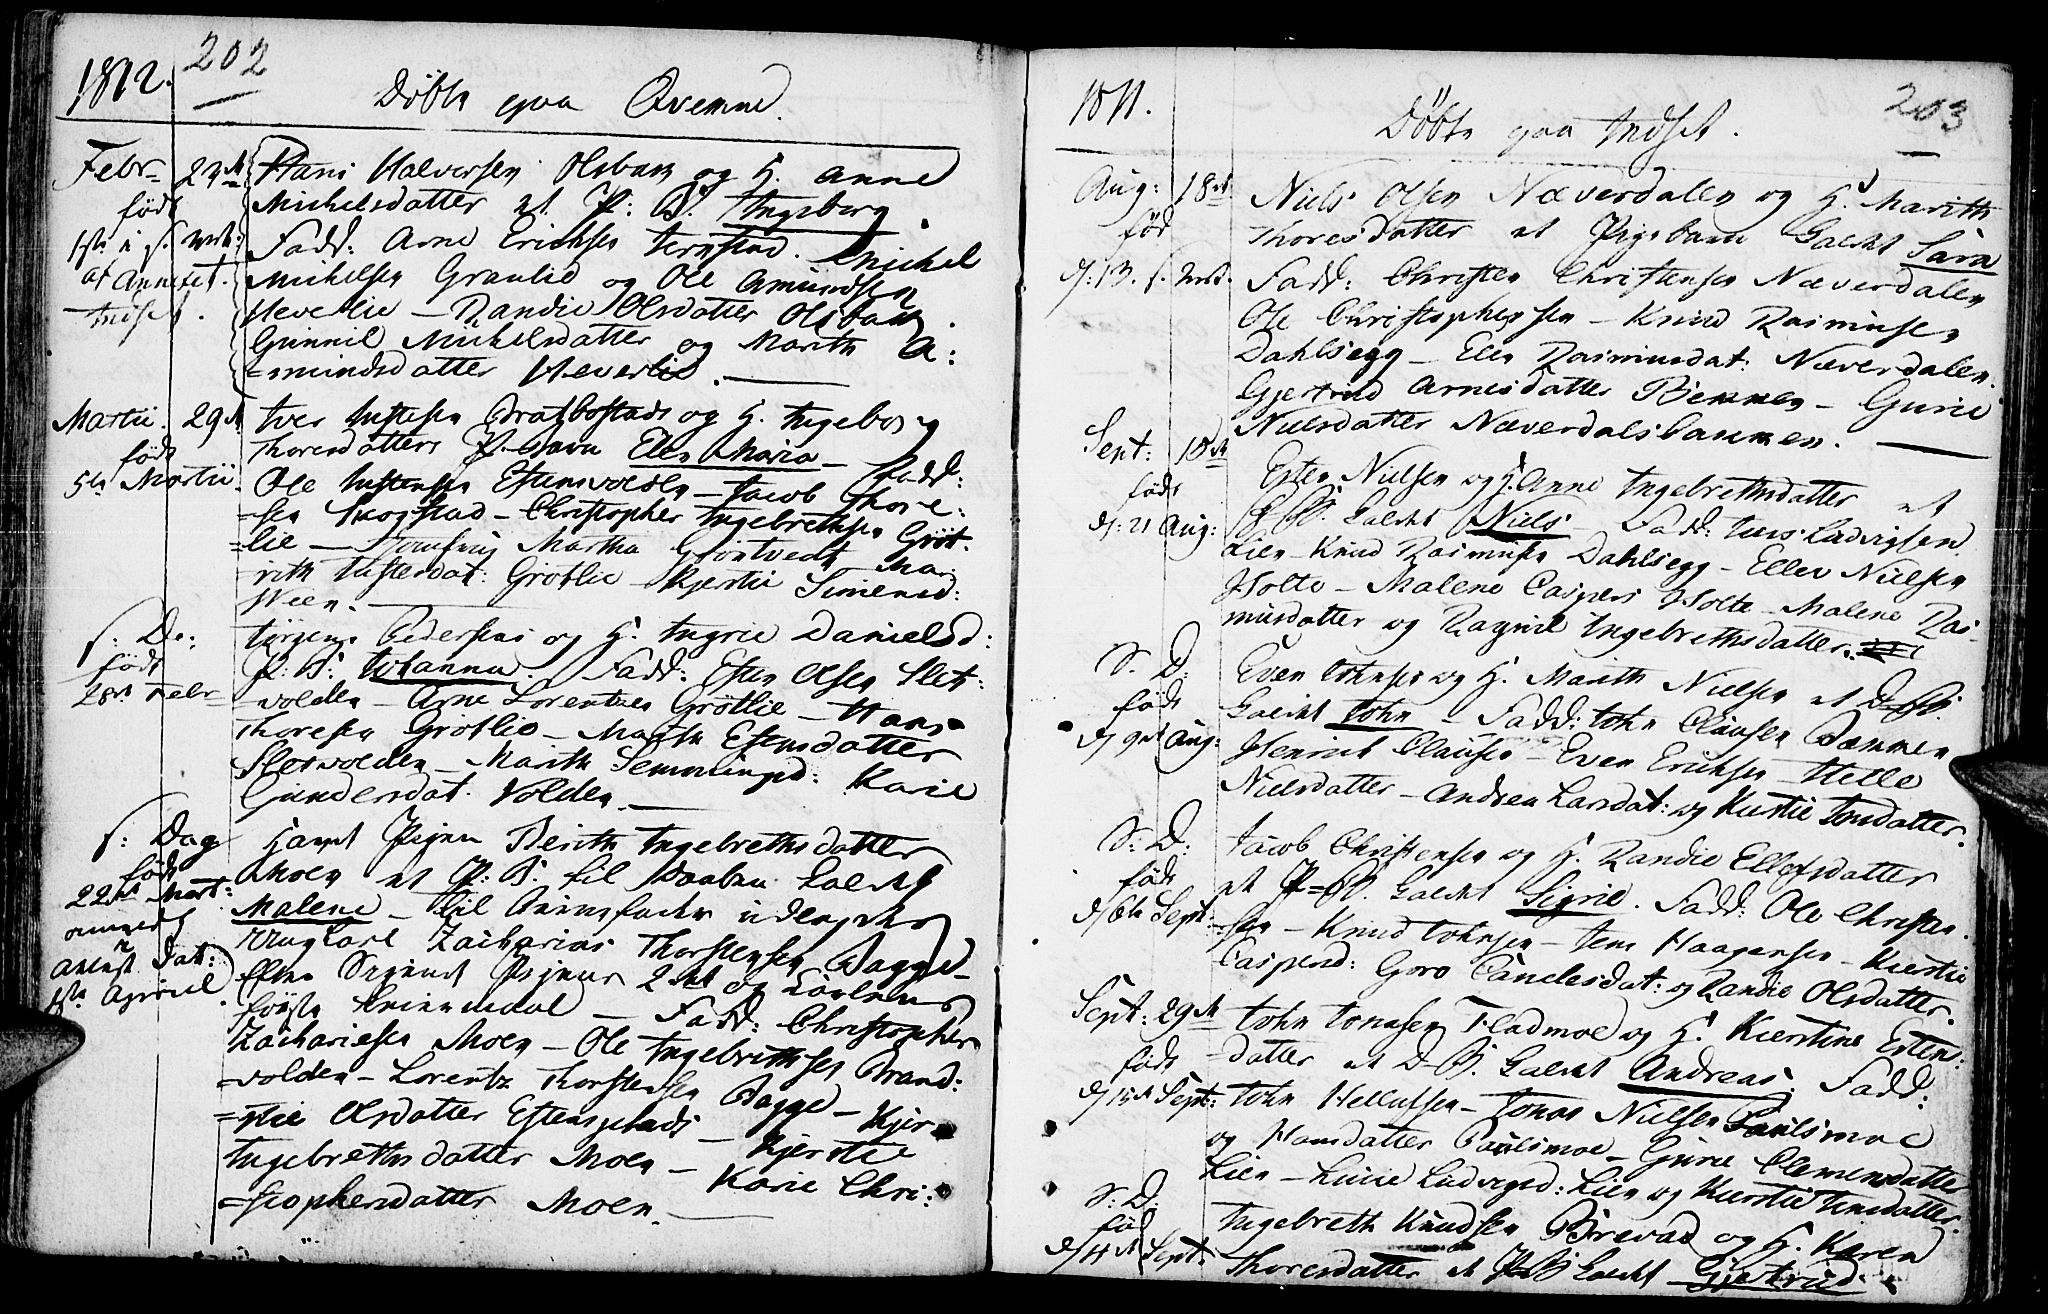 1812. 202
Døbte paa Qvemne.
Febr 23de Hans Halvorsen Olsbak og H. Anne
født Michelsdatter et P: B. Ingeborg
1ste i s. Mrt: Fadd: Arne Ericksen Ternstad. Michel
at Annexet Michelsen Graulie og Ole Amundsen
Indset. Heverlie – Randie Olsdatter Olsbak
Gunnil Michelsdatter og Marith A:
=mundsdatter Heverlie.
Martii 29de Iver Justesen Bratbostad og H. Ingeborg
født Thoresdatters P. Elen Maria – Fadd:
5te Martii Ole Justensen Estensvolden – Jacob Thore:
=sen Skogstad – Christopher Ingebrethsen Grøt:
=lie – Jomfrue Martha Grøntvedt Ma:
rith Justesdat: Grøtlie – Kjerstie Simensd:
Ween.
s: D: Jørgen Pedersens og H. Ingrie Danielsd:
født P: B: Johanna. Fadd: Esten Olsen Slet:
28de Febr =volden – Arne Lorentzen Grøtlie – Hans
Thoresen Grøtlie – Marith Estensdatter
Sletvolden – Marith Semmingsd: Karie
Gundersdat. Volden.
s: Dag Pigen Berith Ingebrethsdatter
født Moen et P: B. til kaldet
22de Mart: Malene – til
Ungkarl Zacharias Thorstensen Bagge –
1ste Apriil 2det og
Fadd: Christopher
Zachariesen Moen – Ole Ingebrethsen Brand:
=volden – Lorentz Thorstensen Bagge – Kjer
=stie Olsdatter Estensplads – Kjerstie
Ingebrethsdatter Moen – Karie Chri:
=stophersdatter Moen.
1811. 203
Døbte paa Indset.
Aug: 18de Niels Olsen Næverdalen og H. Marith
fød Thoresdatter et Pigebarn kaldet Sara
d: 13. s. Mrt. Fadd: Christen Christensen Næverdalen
Ole Christophersen – Knud Rasmusen
Dahlsegg – Elen Rasmusdat: Næverdalen.
Gjertrud Arnesdatter Bemmen – Gurie
Nielsdatter Næverdalsbakken.
Sept: 10de Esten Nielsen og H. Anne Ingebrethsdatter et
født D. B. kaldet Niels – Fadd: Jens Ladvigsen
d: 21 Aug: Lien – Knud Rasmusen Dahlsegg – Ellev Nielsen
Holte – Malene Caspers Holte – Malene Ras=
musdatter og Ragnil Ingebrethsdatter.
S. D: Even Johnsen og H. Marith Nielsen et D. B.
født kaldet John – Fadd: John Clausen Bemmen
d 9de Aug: Henrick Clausen – Even Ericksen – Helle
Nielsdatter – Andrea Larsdat: og Kierstie Jonsdatter.
S: D: Jacob Christensen og H. Randie Ellefsdatter
født et P=B. kaldet Sigrie. Fadd: Ole Christen.
d 6te Sept: sen – Knud Johnsen – Jens Haagensen – Kierstie
Caspersd: Goro Danielsdat: og Randie Olsdatter.
Sept: 29de John Jonasen Fladmoe og H. Kierstine Esten:
født =datter et D-B. kaldet Andreas. Fadd:
d 15de Sept: John Hellufsen – Jonas Nielsen Paulsmoe
og Hansdatter Paulsmoe – Gurie Clemensdatter
Lien – Lucie Ladvigsd: Lien og Kierstie Jensdatter.
S: D: Ingebreth Knudsen Brevad og H. Karen
fød
d 4de Sept: Thoresdatter et P-B kaldet Gjertrud.